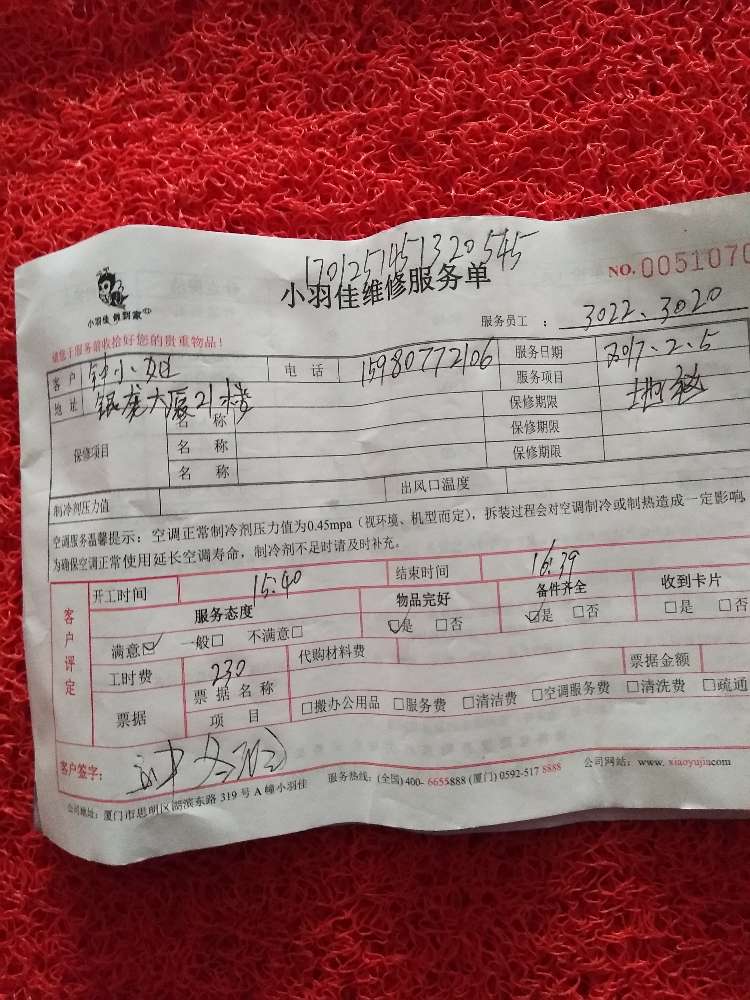 1701251451320545
小羽佳维修服务单
NO. 0051070
小羽佳 做到家
服务员工 : 3022、3020
请您于服务前收拾好您的贵重物品!
客户 钟小姐 电话 15980772106 服务日期 2017、2、5
地址 银龙大厦21楼 服务项目
保修项目 名称 保修期限
名称 保修期限
名称 保修期限
制冷剂压力值 出风口温度
空调服务温馨提示: 空调正常制冷剂压力值为0.45mpa (视环境、机型而定), 拆装过程会对空调制冷或制热造成一定影响,
为确保空调正常使用延长空调寿命, 制冷剂不足时请及时补充。
客户评定 开工时间 15:40 结束时间 16:39
服务态度 物品完好 备件齐全 收到卡片
满意☑ 一般□ 不满意□ ☑是 □否 ☑是 □否 □是 □否
工时费 230 代购材料费
票据 票据名称 票据金额
项目 □搬办公用品 □服务费 □清洁费 □空调服务费 □清洗费 □疏通
客户签字:
公司地址: 厦门市思明区湖滨东路 319 号 A 幢小羽佳 服务热线: (全国) 400- 6655888 (厦门) 0592-517 8888 公司网站: www. xiaoyujiacom